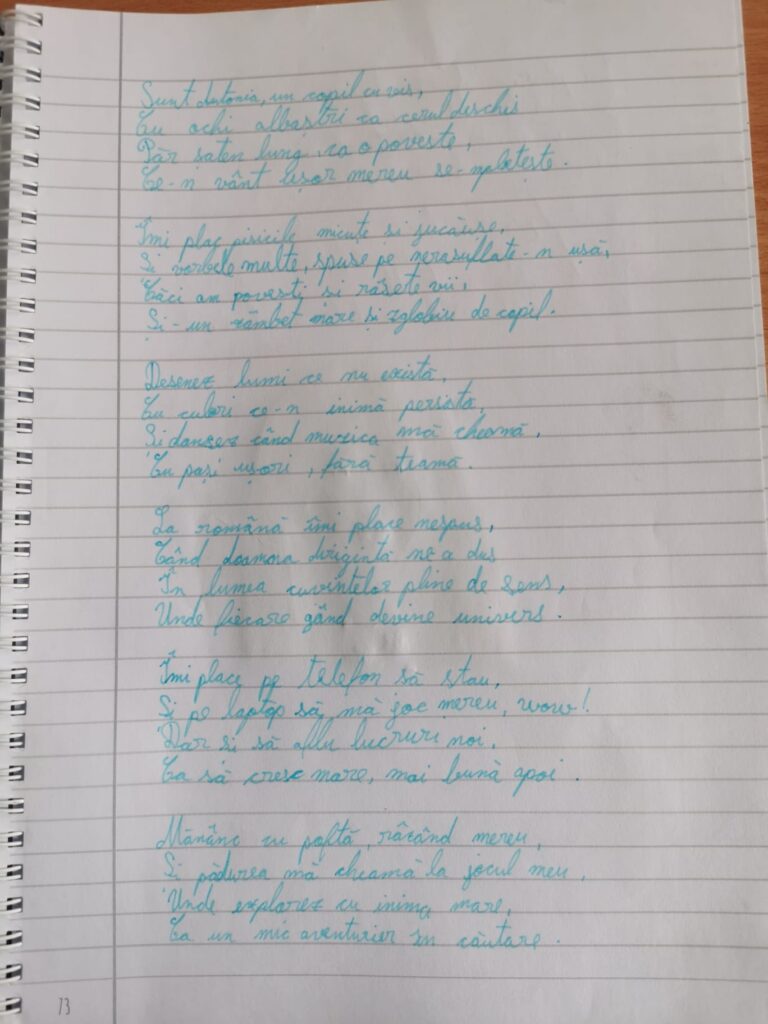 Sunt Antonia, un copil cu vis,
Cu ochi albaștri ca cerul deschis
Păr șaten lung, ca o poveste,
Ce-n vânt ușor mereu se-mpletește.
Îmi plac pisicile micuțe si jucăușe,
Și vorbele multe, spuse pe nerasuflate-n ușă,
Căci am povești și râsete vii,
Și-un zâmbet mare și zglobiu de copil.
Desenez lumi ce nu există,
Cu culori ce-n inimă persistă,
Și dansez când muzica mă cheamă,
Cu pași ușori, fără teamă.
La română îmi place nespus,
Când doamna dirigintă ne-a dus
În lumea cuvintelor pline de sens,
Unde fiecare gând devine univers.
Îmi place pe telefon să stau,
Și pe laptop să mă joc mereu, wow!
Dar si să aflu lucruri noi,
Ca să cresc mare, mai bună apoi.
Mănânc cu poftă, râzând mereu,
Și pădurea mă cheamă la jocul meu,
Unde explorez cu inima mare,
Ca un mic aventurier în căutare.
73